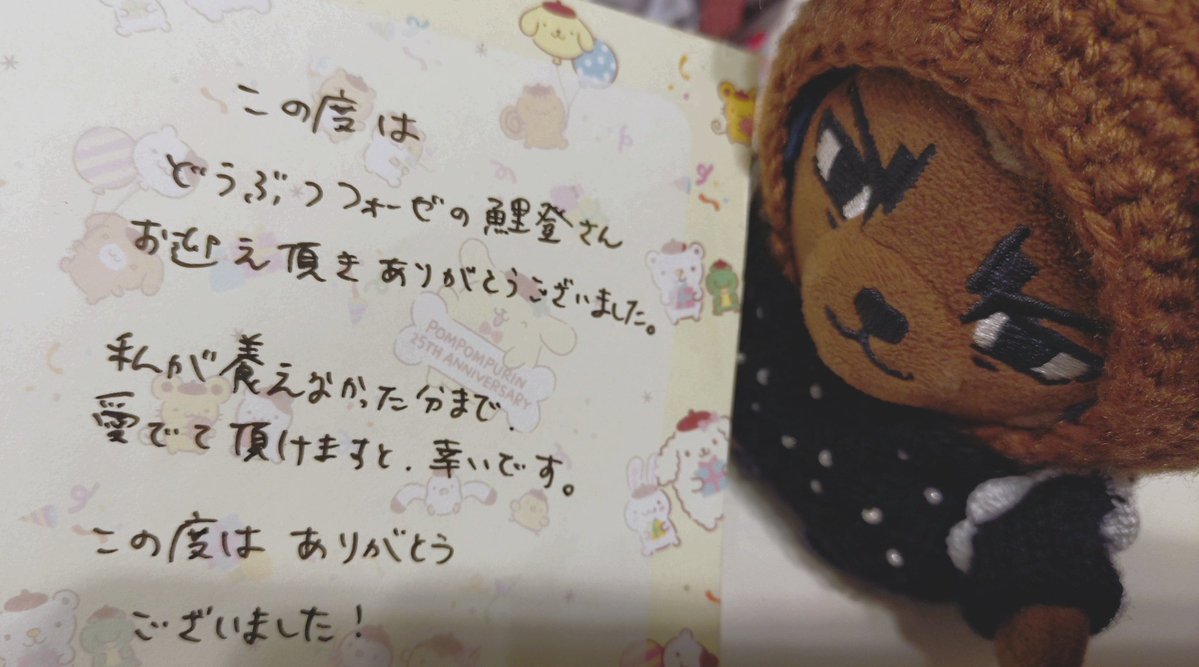 この度は
どうぶつフォーゼの鯉登さん
お迎え頂きありがとうございました。
私が養えなかった分まで、
愛でて頂けますと、幸いです。
この度は ありがとう
ございました!
POMPOMPURIN
25TH ANNIVERSARY